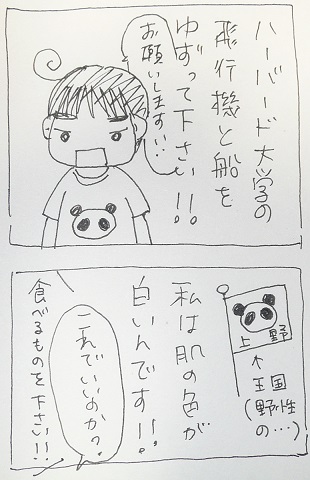 ハーバード大学の
飛行機と船を
ゆずって下さい!!
お願いします!!
上野
↑
王国
(野性
の…)
私は肌の色が
白いんです!!
これでいいのか?
食べるものを下さい!!